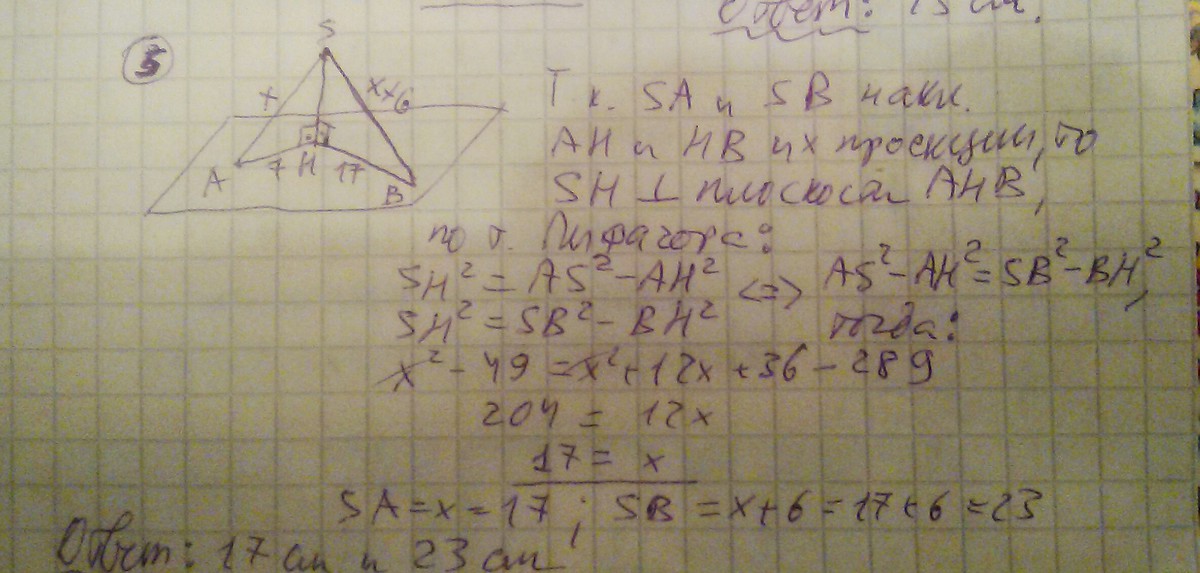 Ответ: 15 см.
5
S
x
x+6
A
7
H
17
B
Т к. SA и SB накл.
AH и HB их проекции, то
SH ⊥ плоскости AHB,
по т. Пифагора:
SH² = AS² - AH² <=> AS² - AH² = SB² - BH²,
SH² = SB² - BH² тогда:
x² - 49 = x² + 12x + 36 - 289
204 = 12x
17 = x
SA = x = 17 ; SB = x + 6 = 17 + 6 = 23
Ответ: 17 см и 23 см